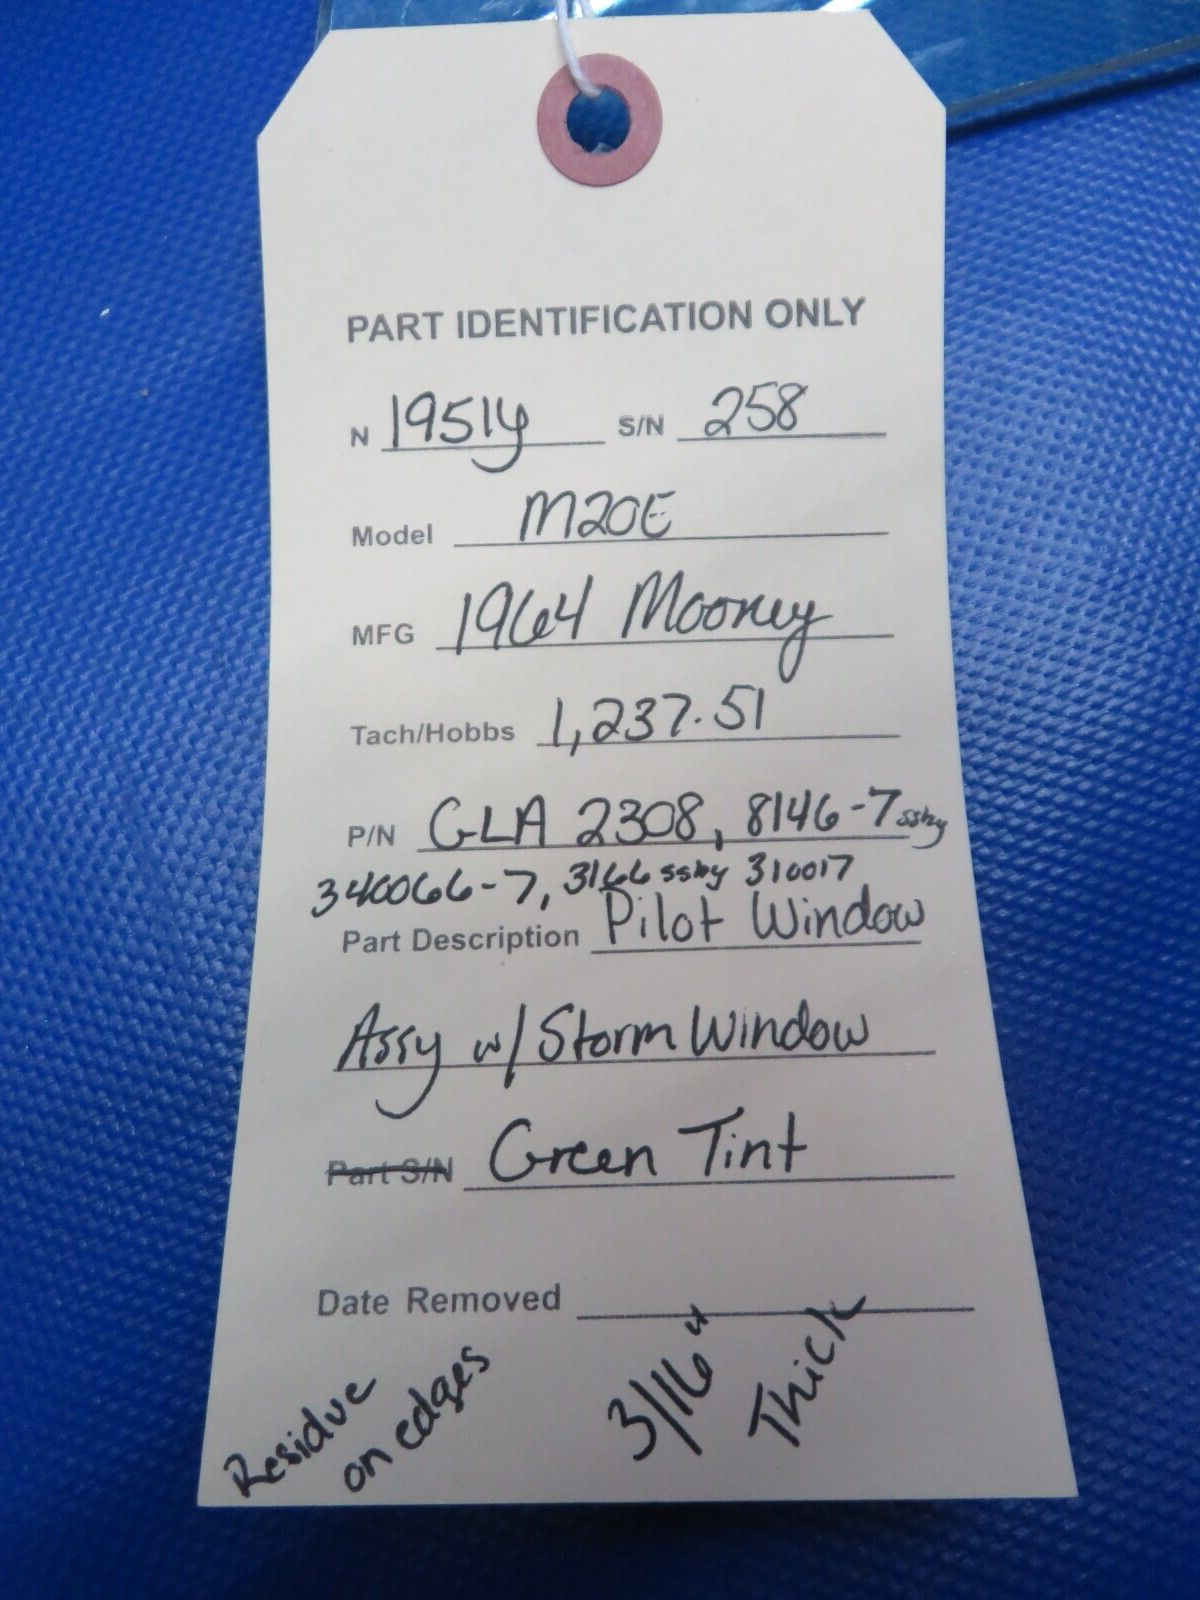 PART IDENTIFICATION ONLY
N 1951y S/N 258
Model M20E
MFG 1964 Mooney
Tach/Hobbs 1,237.51
P/N GLA 2308, 8146-7 ssby
340066-7, 3166 ssby 310017
Part Description Pilot Window
Assy w/ Storm Window
Part S/N Green Tint
Date Removed
Residue on edges
3/16" Thick